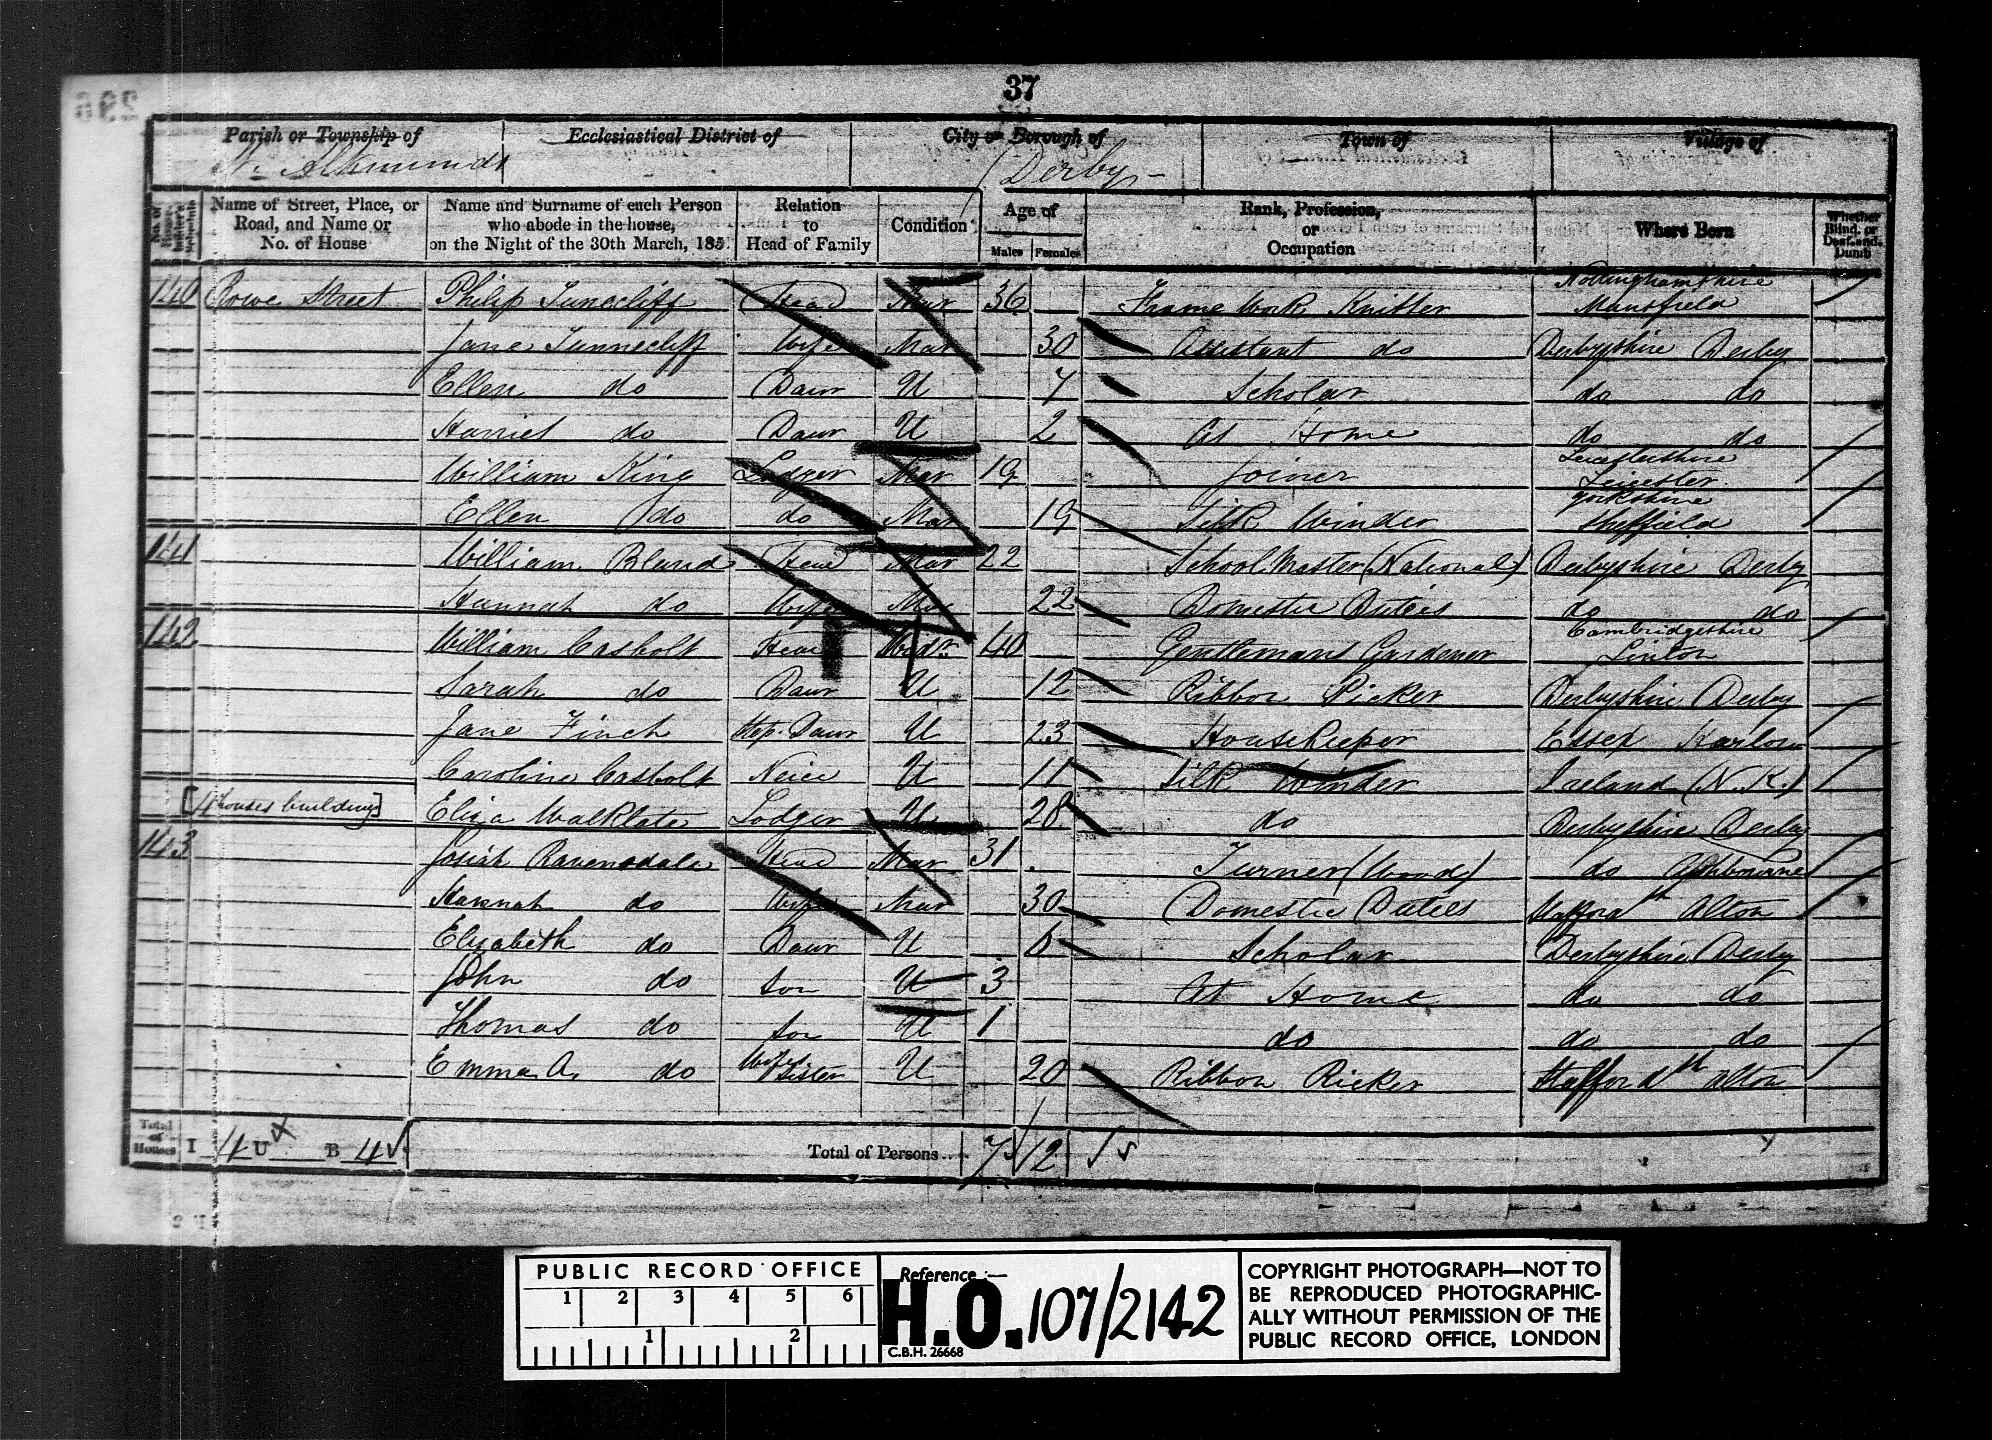 37
Parish or Township of Ecclesiastical District of City or Borough of Town of Village of
St. Alkmunds Derby
No. of House-holder's Schedule Name of Street, Place, or Road, and Name or No. of House Name and Surname of each Person who abode in the house, on the Night of the 30th March, 185 Relation to Head of Family Condition Age of Males Females Rank, Profession, or Occupation Where Born Whether Blind, or Deaf-and-Dumb
140 Rowe Street Philip Tunecliff Head Mar 36 Frame Work Knitter Nottinghamshire Mansfield
Jane Tunnecliff Wife Mar 30 Assistant do Derbyshire Derby
Ellen do Daur U 7 Scholar do do
Harriet do Daur U 2 At Home do do
William King Lodger Mar 19 Joiner Leicestershire Leicester
Ellen do do Mar 19 Silk Winder Yorkshire Sheffield
141 William Bland Head Mar 22 School Master (National) Derbyshire Derby
Hannah do Wife Mar 22 Domestic Duties do do
142 William Casbolt Head Widr 40 Gentlemans Gardener Cambridgeshire Linton
Sarah do Daur U 12 Ribbon Picker Derbyshire Derby
Jane Finch Step-Daur U 23 Housekeeper Essex Harlow
Caroline Casbolt Neice U 11 Silk Winder Ireland (N.K.)
[4 houses building] Eliza Walklate Lodger U 28 do Derbyshire Derby
143 Josiah Ravensdale Head Mar 31 Turner (Wood) do Ashbourne
Hannah do Wife Mar 30 Domestic Duties Staffordsh Alton
Elizabeth do Daur U Scholar Derbyshire Derby
John do Son U 3 At Home do do
Thomas do Son U 1 do do do
Emma A. do Wifes Sister U 20 Ribbon Picker Staffordsh Alton
Total of Houses I 4 U B 4 Total of Persons... 7 12
PUBLIC RECORD OFFICE
1 2 3 4 5 6
1 2
Reference :—
H.O. 107/2142
C.B.H. 26668
COPYRIGHT PHOTOGRAPH—NOT TO
BE REPRODUCED PHOTOGRAPHIC-
ALLY WITHOUT PERMISSION OF THE
PUBLIC RECORD OFFICE, LONDON